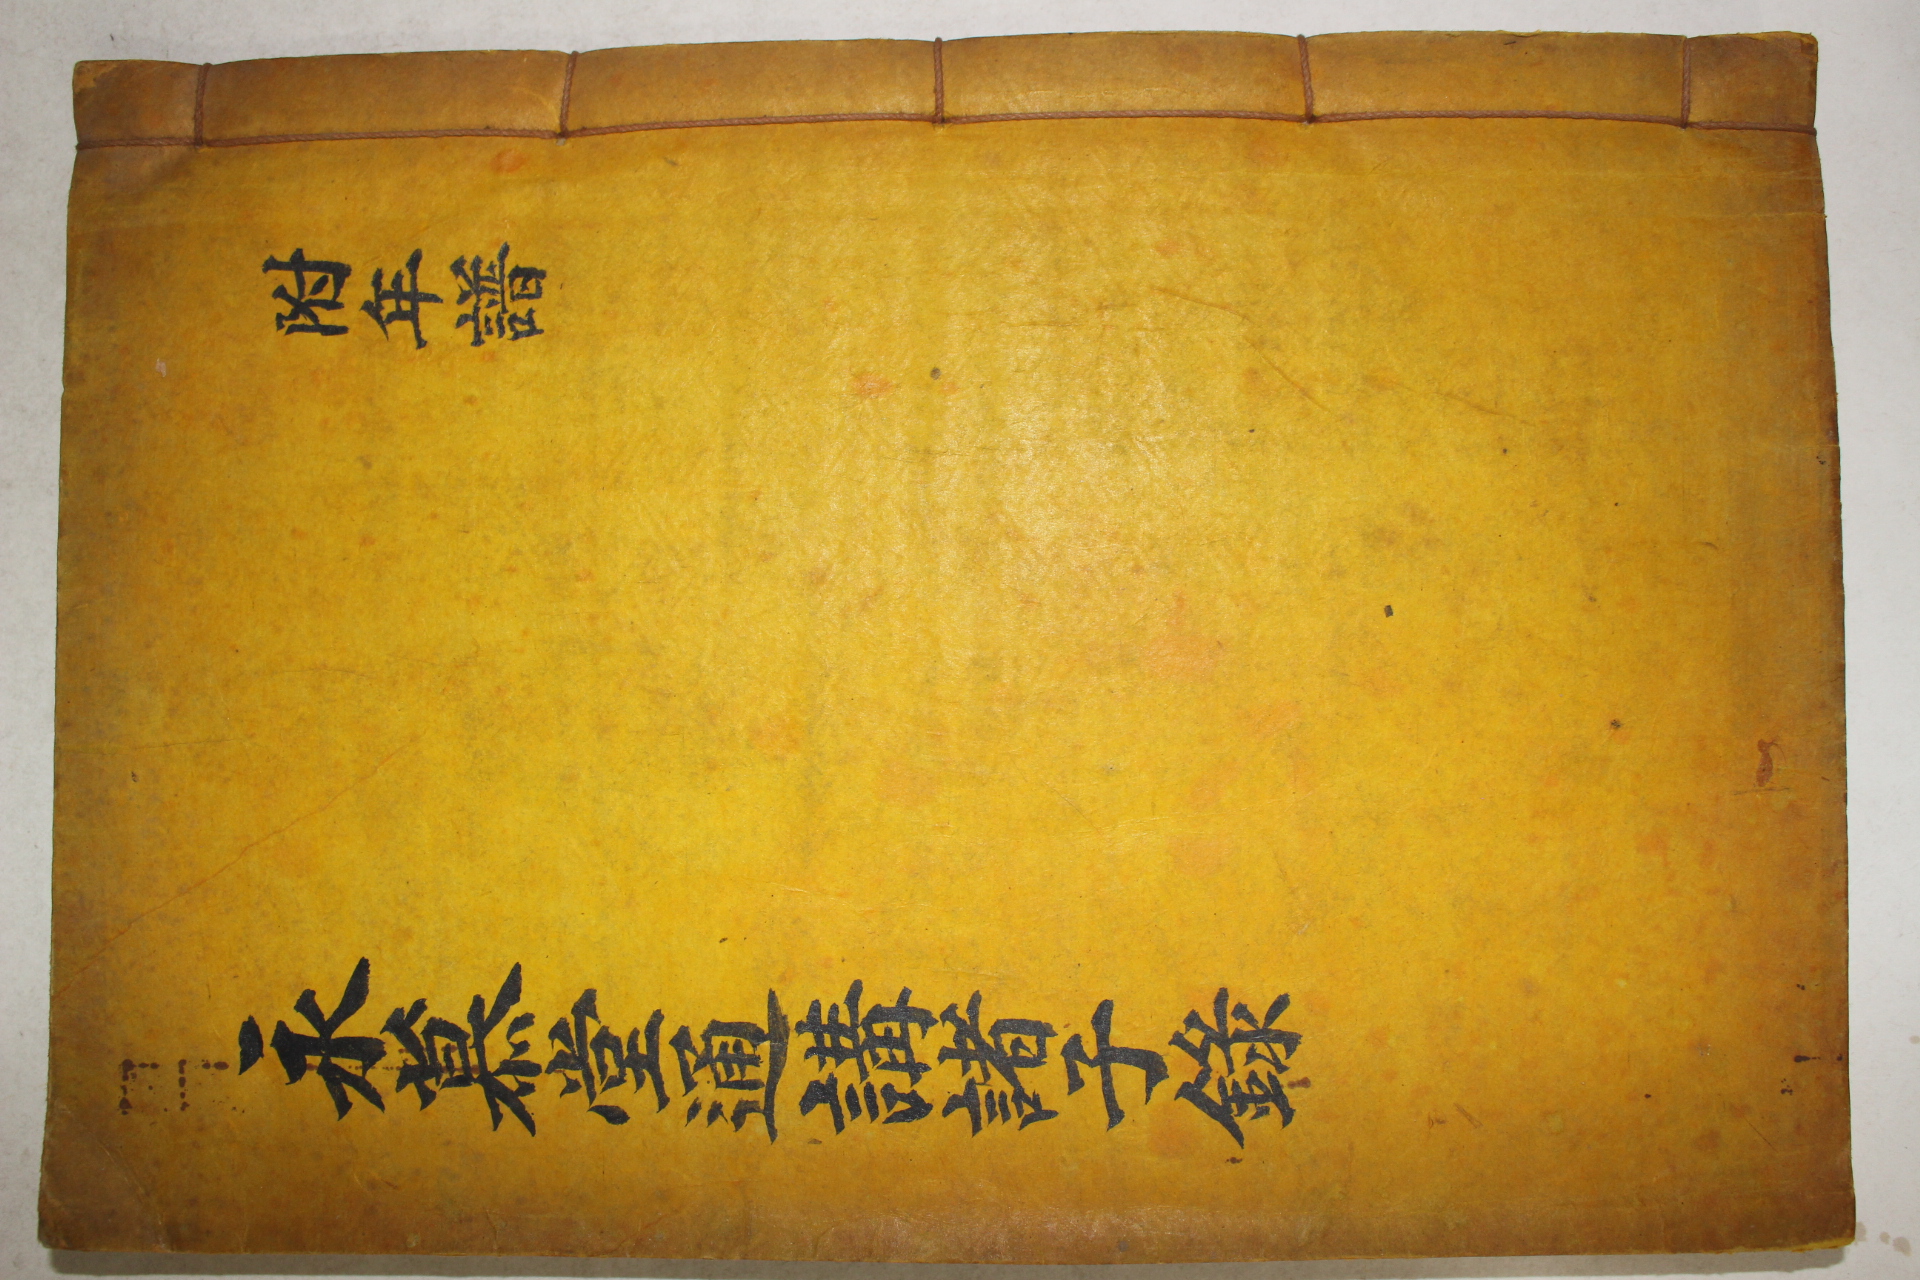 附年譜
永慕堂通講諸子錄